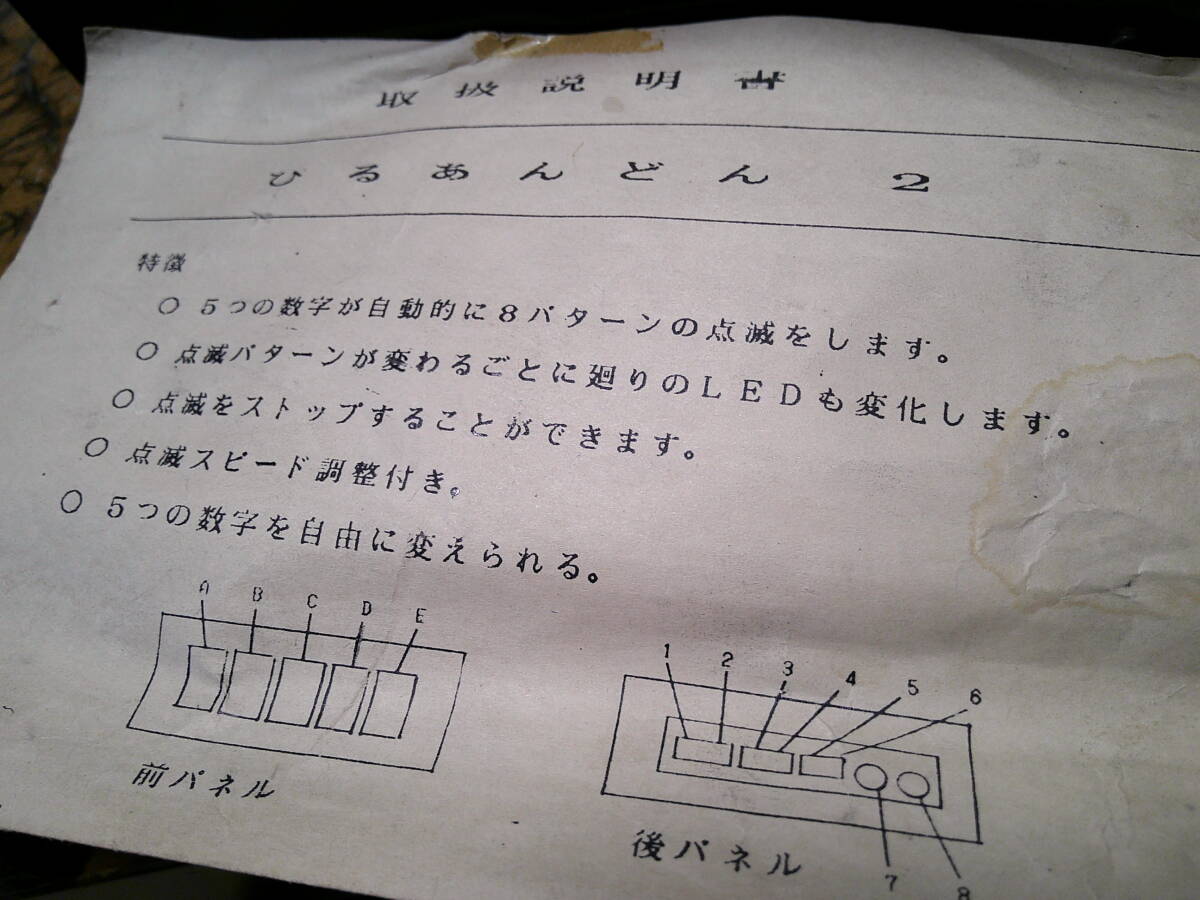 取扱説明書
ひるあんどん 2
特徴
○ 5つの数字が自動的に8パターンの点滅をします。
○ 点滅パターンが変わるごとに廻りのLEDも変化します。
○ 点滅をストップすることができます。
○ 点滅スピード調整付き。
○ 5つの数字を自由に変えられる。
A B C D E
前パネル
1 2 3 4 5 6
7 8
後パネル